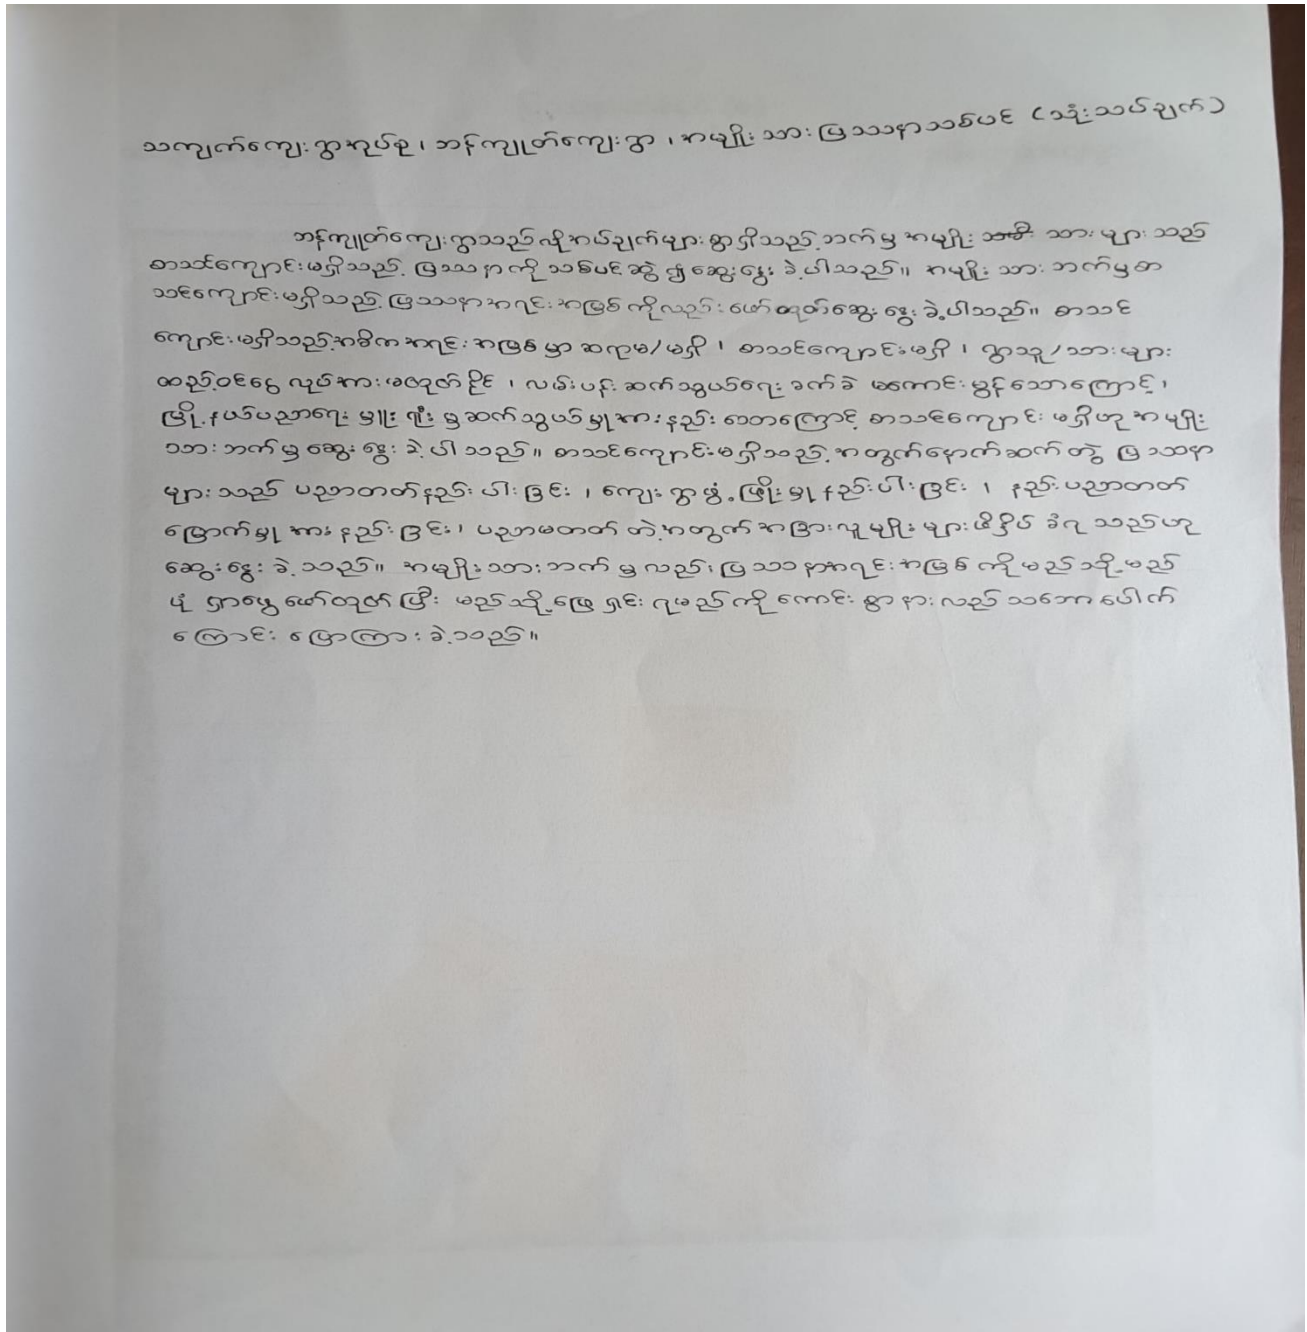 သကျက်ကျေးရွာအုပ်စု၊ ဘန်ကျုတ်ကျေးရွာ၊ အမျိုးသားပြဿနာသစ်ပင် (သုံးသပ်ချက်)
ဘန်ကျုတ်ကျေးရွာသည်လိုအပ်ချက်များစွာရှိသည့်ဘက်မှ အမျိုး သားများသည်
စာသင်ကျောင်းမရှိသည့် ပြဿနာကို သစ်ပင်ဆွဲ၍ဆွေးနွေးခဲ့ပါသည်။ အမျိုးသားဘက်မှစာ
သင်ကျောင်းမရှိသည့်ပြဿနာအရင်းအမြစ်ကိုလည်းဖော်ထုတ်ဆွေးနွေးခဲ့ပါသည်။ စာသင်
ကျောင်းမရှိသည့်အဓိကအရင်းအမြစ်မှာ ဆရာမ/မရှိ၊ စာသင်ကျောင်းမရှိ၊ ရွာသူ/သားများ
ထည့်ဝင်ငွေလုပ်အားမထုတ်နိုင်၊ လမ်းပန်းဆက်သွယ်ရေးခက်ခဲ မကောင်းမွန်သောကြောင့်၊
မြို့နယ်ပညာရေးမှူးရုံးမှဆက်သွယ်မှုအားနည်းသောကြောင့် စာသင်ကျောင်းမရှိဟုအမျိုး
သားဘက်မှဆွေးနွေးခဲ့ပါသည်။ စာသင်ကျောင်းမရှိသည့်အတွက်နောက်ဆက်တွဲပြဿနာ
များသည် ပညာတတ်နည်းပါးခြင်း၊ ကျေးရွာဖွံ့ဖြိုးမှုနည်းပါးခြင်း၊ နည်းပညာတတ်
မြောက်မှုအားနည်းခြင်း၊ ပညာမတတ်တဲ့အတွက်အခြားလူမျိုးများဖိနှိပ်ခံရသည်ဟု
ဆွေးနွေးခဲ့သည်။ အမျိုးသားဘက်မှလည်းပြဿနာအရင်းအမြစ်ကိုမည်သို့မည်
ပုံရှာဖွေဖော်ထုတ်ပြီး မည်သို့ဖြေရှင်းရမည်ကိုကောင်းစွာနားလည်သဘောပေါက်
ကြောင်းပြောကြားခဲ့သည်။